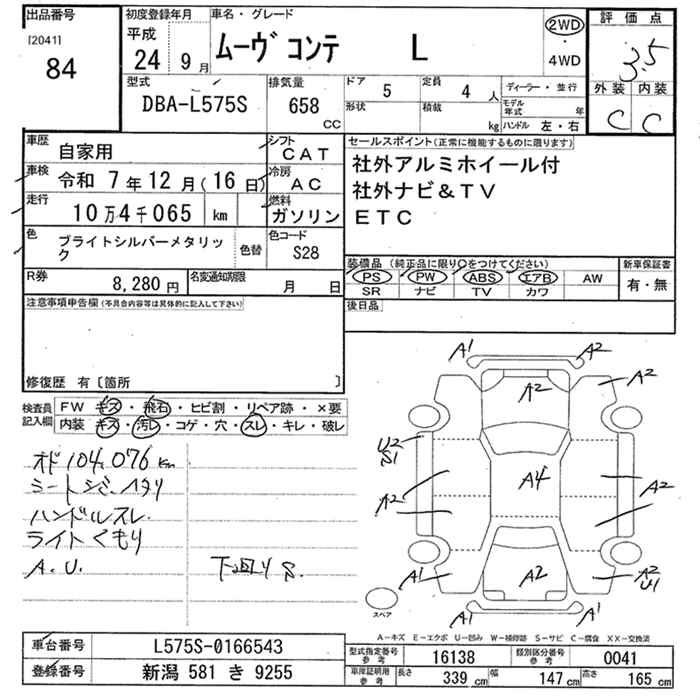 出品番号
[2041]
84
初度登録年月
平成
24年9月
車名・グレード
ムーヴ コンテ L
2WD
・
4WD
評価点
3.5
外装 内装
C C
型式
DBA-L575S
排気量
658
CC
ドア 5
形状
定員 4人
積載 kg
ディーラー・並行
モデル年式 年
ハンドル 左・右
車歴
自家用
シフト
CAT
車検
令和 7年12月(16日)
冷房
AC
走行
10万4千065 km
燃料
ガソリン
色
ブライトシルバーメタリック
色替
色コード
S28
R券
8,280円
名変通知期限
月 日
セールスポイント(正常に機能するものに限ります)
社外アルミホイール付
社外ナビ&TV
ETC
装備品(純正品に限り○をつけてください)
PS PW ABS エアB AW
SR ナビ TV カワ
新車保証書
有・無
後日品
注意事項申告欄(不具合内容等は具体的に記入して下さい)
修復歴 有〔箇所 〕
検査員
記入欄
FW キズ・飛石・ヒビ割・リペア跡・×要
内装 キズ・汚レ・コゲ・穴・スレ・キレ・破レ
オド104,076km
シートシミ、ヘタリ
ハンドルスレ
ライトくもり
A.U.
下回りS.
A1
A2
A2
A2
U2
S1
A4
A2
A2
A1
A2
A2
U1
A1
A1
スペア
A-キズ E-エクボ U-凹み W-補修跡 S-サビ C-腐食 XX-交換済
車台番号
L575S-0166543
登録番号
新潟 581 き 9255
型式指定番号
参考
16138
類別区分番号
参考
0041
車庫証明用
参考
長さ 339 cm
幅 147 cm
高さ 165 cm